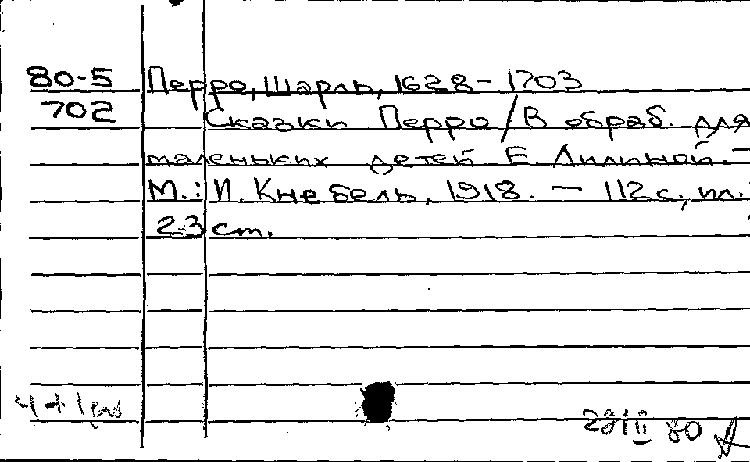 80-5 Перро, Шарль, 1628-1703
702 Сказки Перро / В обраб. для
маленьких детей Е. Лилиной. -
М.: И. Кнебель, 1918. - 112 с., ил.;
23 см.
80